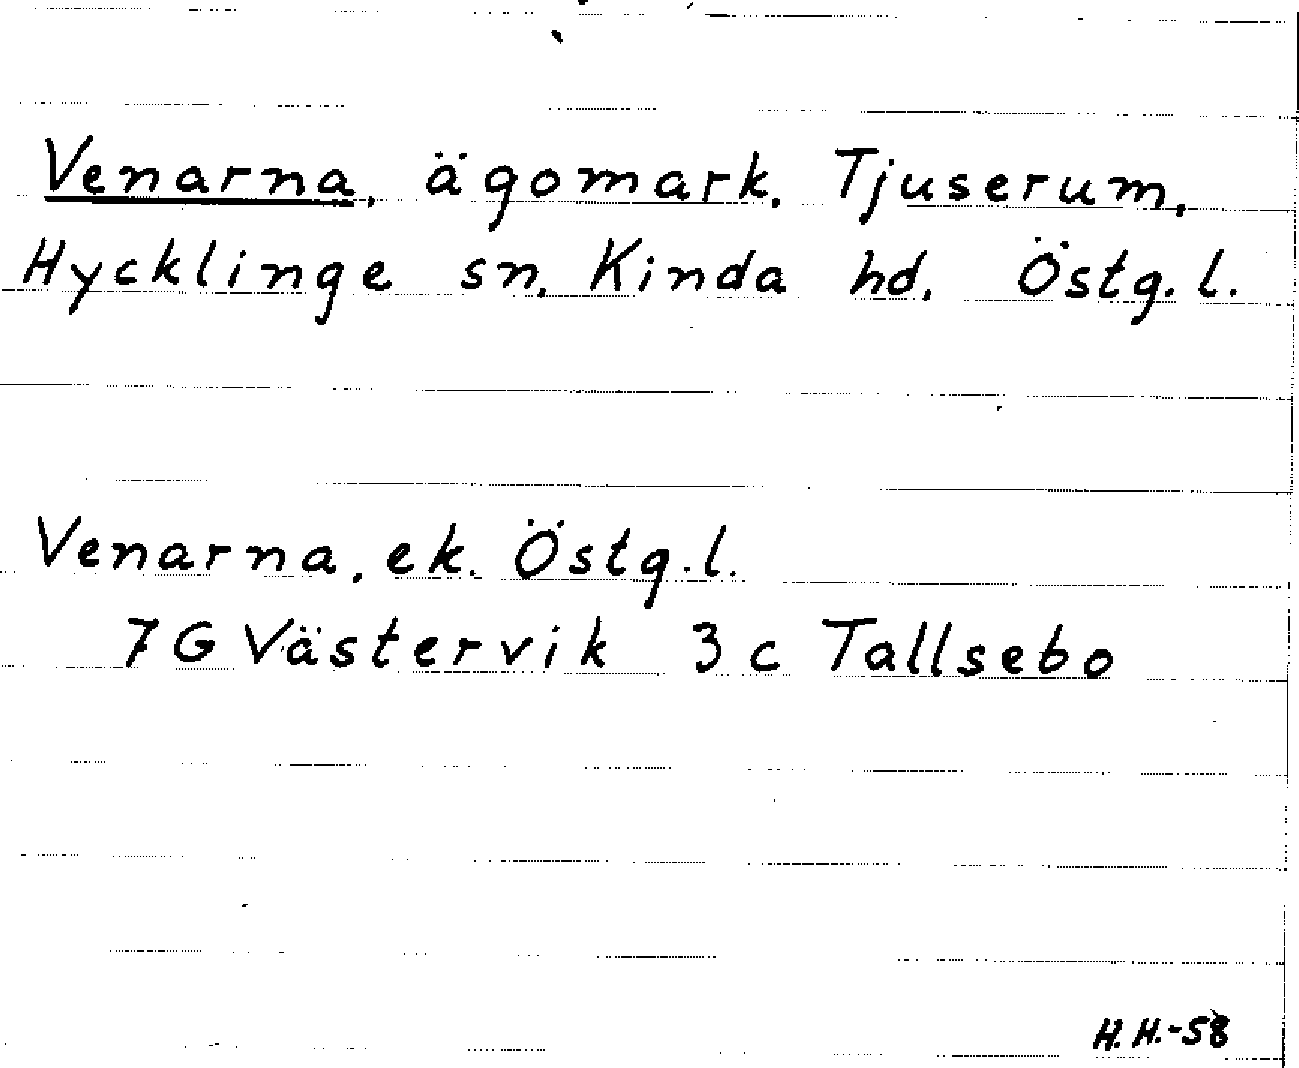 Venarna, ägomark. Tjuserum,
Hycklinge sn. Kinda hd. Östg. l.
Venarna, ek. Östg. l.
7 G Västervik 3 c Tallsebo
H. H.-58